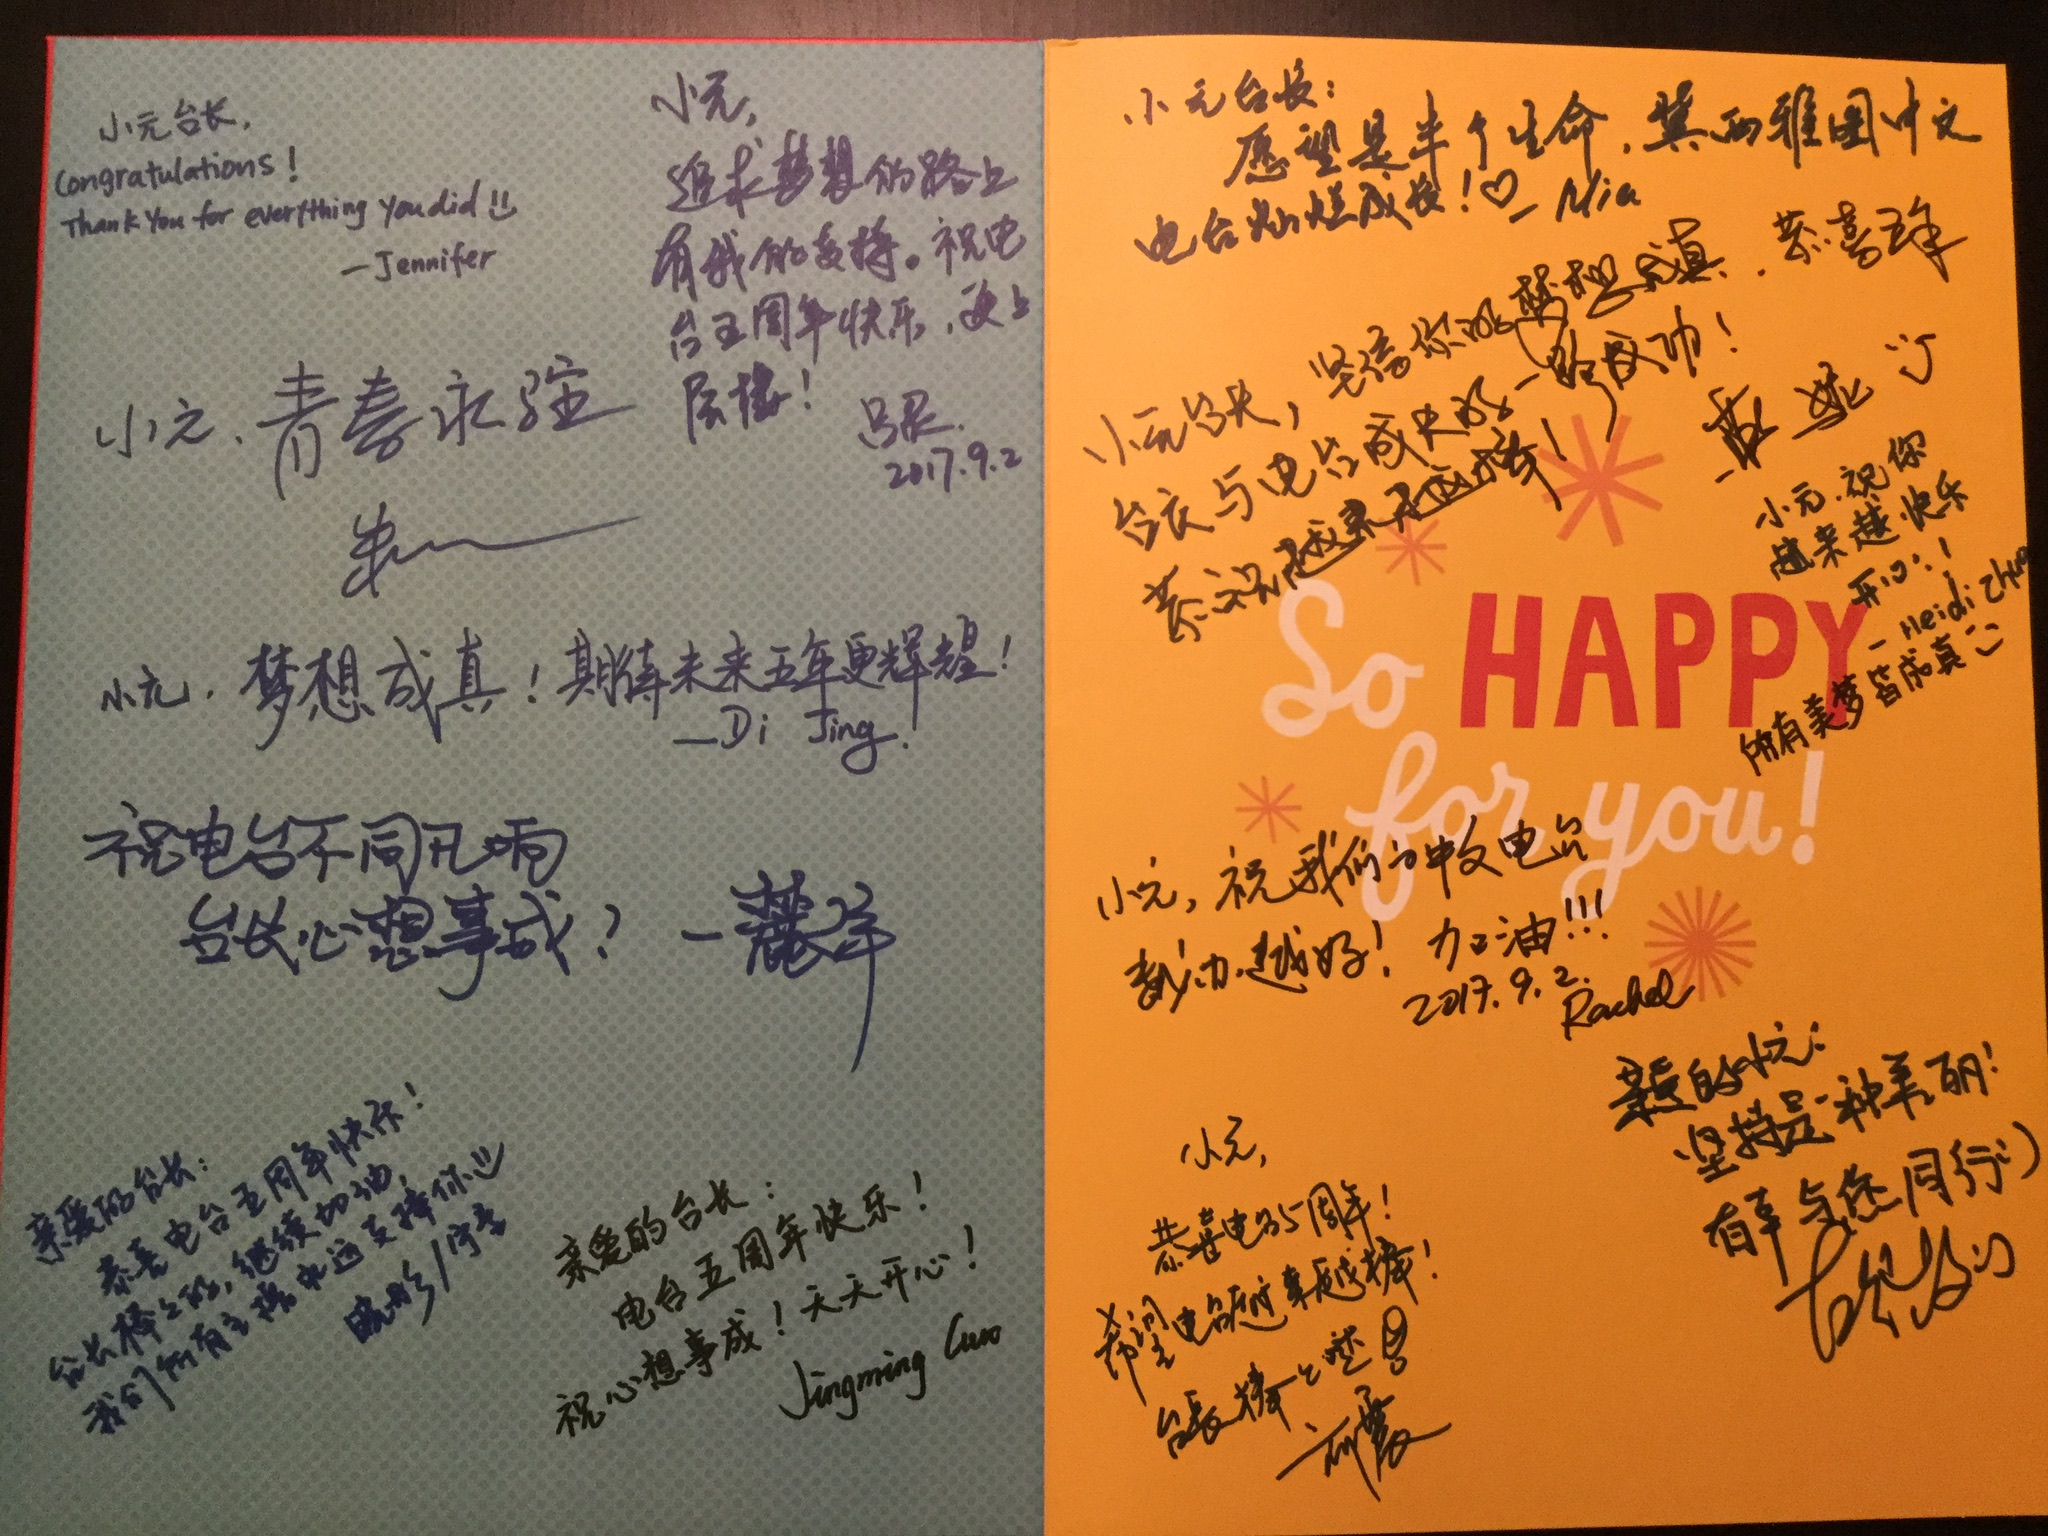 小元台长,
Congratulations!
Thank you for everything you did
—Jennifer
小元,
追求梦想的路上
有我的支持。祝电
台五周年快乐,更上
层楼!
2017.9.2
小元、青春永驻
小元、梦想成真!期待未来五年更辉煌!
—Di Jing
祝电台不同凡响
台长心想事成!
亲爱的台长:
恭喜电台五周年快乐!
台长棒棒的,继续加油,
我们所有主播永远支持你
亲爱的台长:
电台五周年快乐!
祝心想事成!天天开心!
Jingming Guo
小元台长:
愿望是半个生命,冀西雅图中文
电台灿烂成长!♡—Mia
小元台长,坚信你的梦想成真、恭喜
台长与电台成长的一路成功!
恭祝越来越棒!
小元、祝你
越来越快乐
开心!
— Heidi Zhu
所有美梦皆成真
So HAPPY
for you!
小元,祝我们的中文电台
越办越好!加油!!!
2017.9.2.
Rachel
亲爱的小元:
坚持是一种美丽!
有幸与您同行:)
小元,
恭喜电台5周年!
希望电台越来越棒!
台長棒